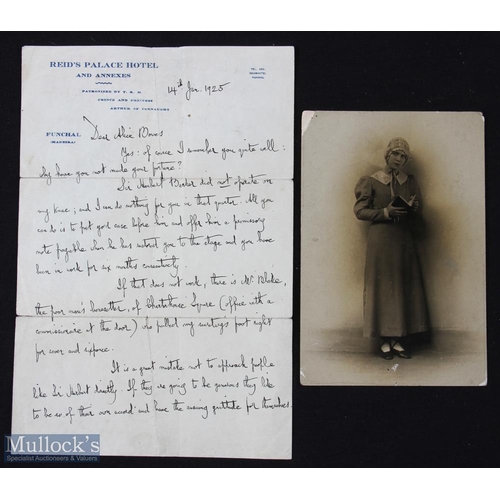 REID'S PALACE HOTEL
AND ANNEXES
PATRONIZED BY T. R. H.
PRINCE AND PRINCESS
ARTHUR OF CONNAUGHT
FUNCHAL
(MADEIRA)
14th Jan. 1925
Dear Alice Bowes
Yes: of course I remember you quite well:
Why have you not made your fortune?
Sir Herbert Barker did not operate on
my knee; and I can do nothing for you in that quarter. All you
can do is to put your case before him and offer him a promissory
note payable when he has restored you to the stage and you have
been in work for six months consecutively.
If that does not work, there is Mr Blake,
the poor man's bonesetter, of Charterhouse Square (office with a
commissionaire at the door) who pulled my foot right
for over and sixpence.
It is a great mistake not to approach people
like Sir Herbert directly. If they are going to be generous they like
to be so of their own accord and have the ensuing gratitude for themselves.
Mullock's
Specialist Auctioneers & Valuers